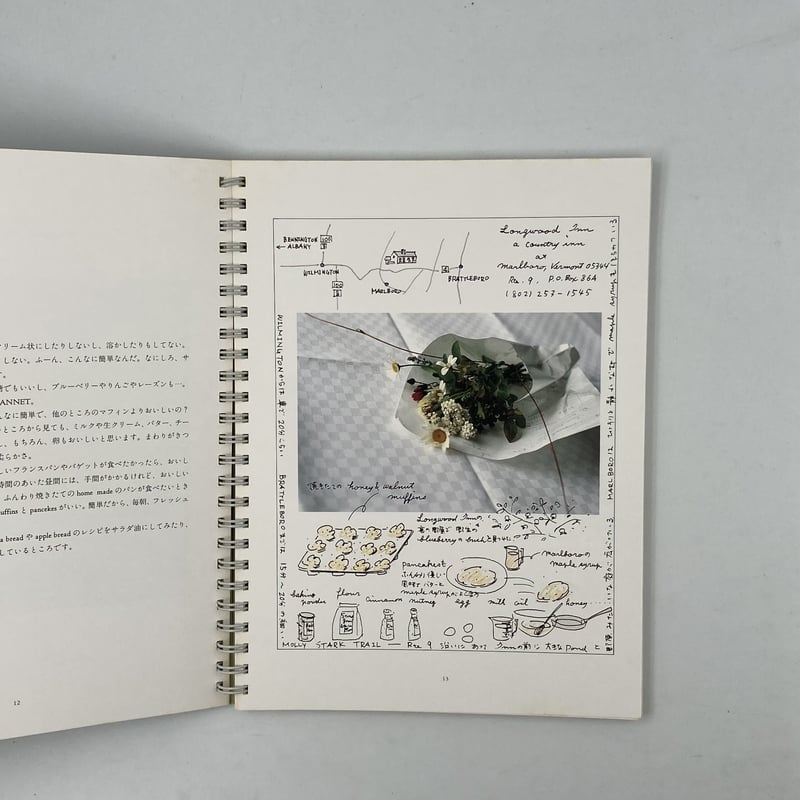 クリーム状にしたりしないし、溶かしたりもしてない。
しない。ふーん、こんなに簡単なんだ。なにしろ、サ
す。
でもいいし、ブルーベリーやりんごやレーズンも…。
ANNET。
んなに簡単で、他のところのマフィンよりおいしいの？
ところから見ても、ミルクや生クリーム、バター、チー
し、もちろん、卵もおいしいと思います。まわりがきつ
柔らかさ。
しいフランスパンやバゲットが食べたかったら、おいし
時間のあいた昼間には、手間がかかるけれど、おいしい
ふんわり焼きたての home made のパンが食べたいとき
muffins と pancakes がいい。簡単だから、毎朝、フレッシュ
a bread や apple bread のレシピをサラダ油にしてみたり、
しているところです。
12
BENNINGTON
ALBANY
WILMINGTON
MARLBORO
BRATTLEBORO
Longwood Inn
a country inn
at
Marlboro, Vermont 05344
Rte. 9, P.O. Box 86A
(802) 257-1545
WILMINGTONからは車で20分くらい
BRATTLEBOROまでは15分〜20分
焼きたての honey & walnut
muffins
Longwood Innの
blueberryの bushと
pancakes!
ふんわり優しい
バターと
maple syrup
marlboroの
maple syrup
baking
powder
flour
cinnamon
nutmeg
egg
milk
oil
honey
MOLLY STARK TRAIL — Rte 9 沿いに あって Innの前に 大きな pond と
MARLBORO は
maple syrup
13